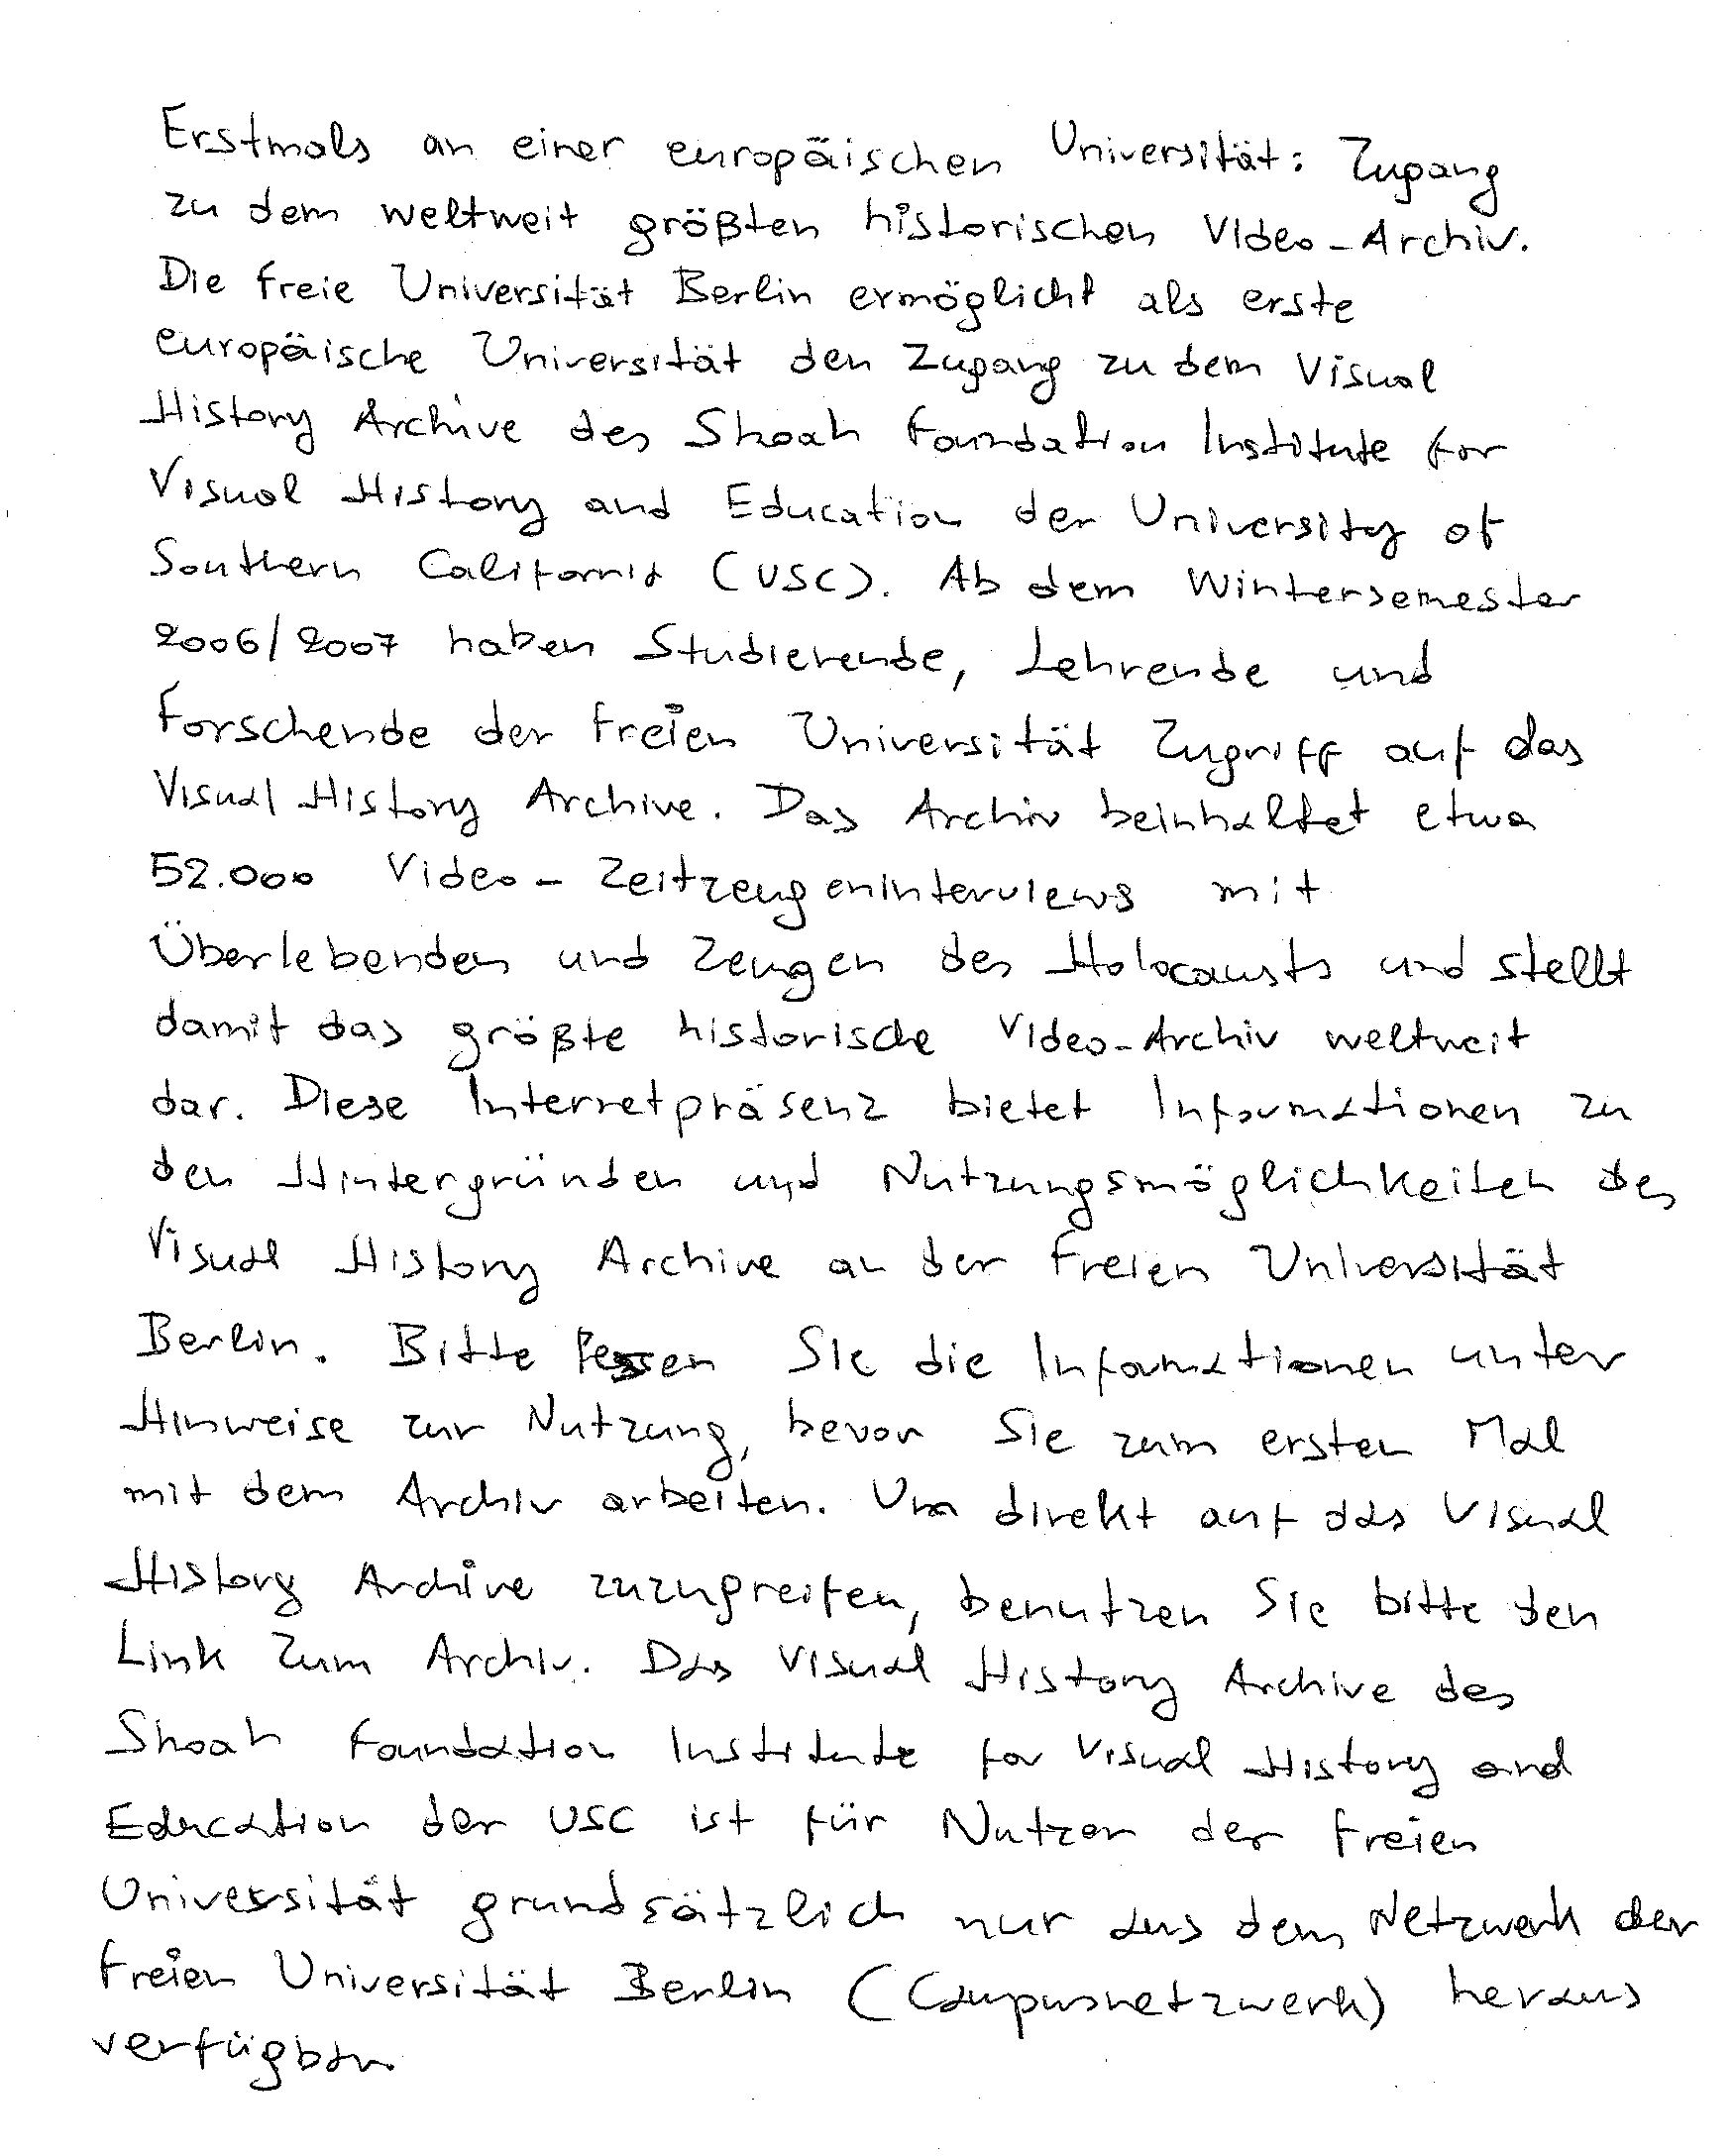 Erstmals an einer europäischen Universität: Zugang
zu dem weltweit größten historischen Video-Archiv.
Die Freie Universität Berlin ermöglicht als erste
europäische Universität den Zugang zu dem Visual
History Archive des Shoah Foundation Institute for
Visual History and Education der University of
Southern California (USC). Ab dem Wintersemester
2006/2007 haben Studierende, Lehrende und
Forschende der Freien Universität Zugriff auf das
Visual History Archive. Das Archiv beinhaltet etwa
52.000 Video-Zeitzeugeninterviews mit
Überlebenden und Zeugen des Holocausts und stellt
damit das größte historische Video-Archiv weltweit
dar. Diese Internetpräsenz bietet Informationen zu
den Hintergründen und Nutzungsmöglichkeiten des
Visual History Archive an der Freien Universität
Berlin. Bitte lesen Sie die Informationen unter
Hinweise zur Nutzung, bevor Sie zum ersten Mal
mit dem Archiv arbeiten. Um direkt auf das Visual
History Archive zuzugreifen, benutzen Sie bitte den
Link zum Archiv. Das Visual History Archive des
Shoah Foundation Institute for Visual History and
Education der USC ist für Nutzer der Freien
Universität grundsätzlich nur aus dem Netzwerk der
Freien Universität Berlin (Campusnetzwerk) heraus
verfügbar.